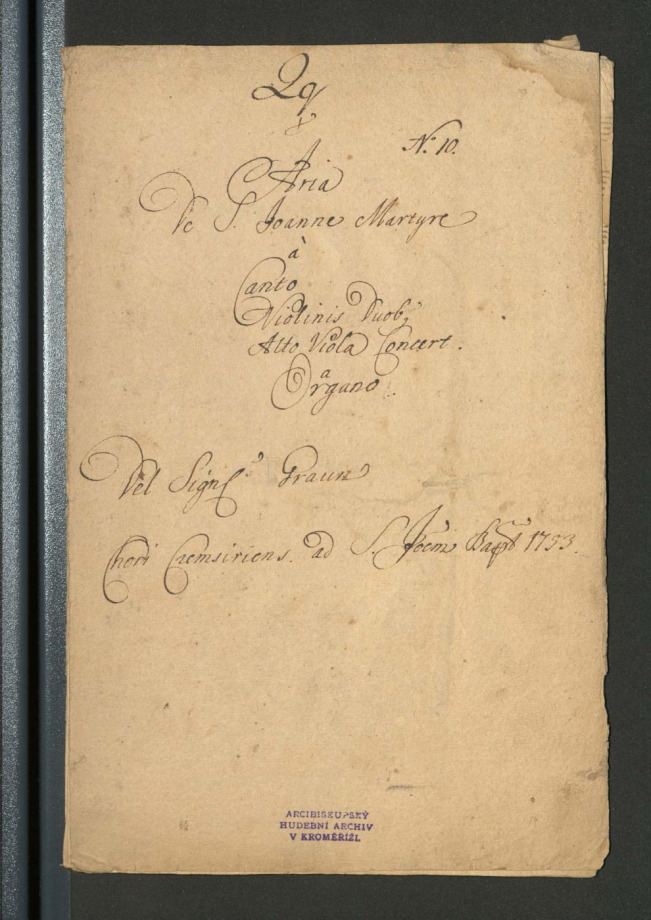 Qq
N: 10.
Aria
De S. Joanne Martyre
à
Canto
Violinis Duob:
Alto Viola Concert.
a
Organo.
Del Sig Graun
Chori Cremsiriens. ad S. Joem Bapt 1753.
ARCIBISKUPSKÝ
HUDEBNÍ ARCHIV
V KROMĚŘÍŽI.